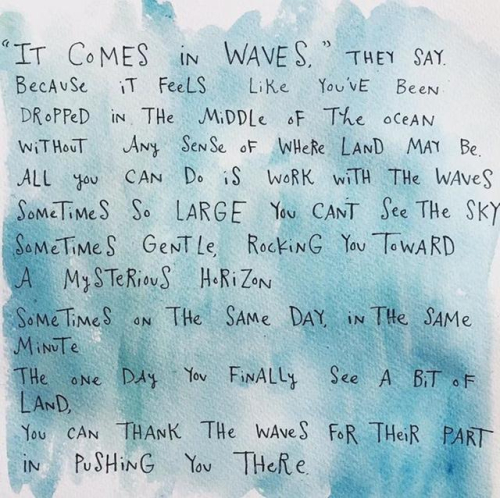 "IT COMES in WAVES," THEY SAY.
BECAUSE iT FeeLS LiKe YOU'VE BEEN
DROPPED iN THE MiDDLE oF The oCEAN
WiTHOUT Any SENSe oF WHeRe LAND MAY Be.
ALL you CAN Do iS WoRK WiTH THE WAVeS
SOMeTiMeS So LARGE You CANT See THe SKY
SoMeTiMeS GeNTLe, RocKiNG You ToWARD
A MySTeRiouS HoRiZoN
SoMeTiMeS oN THe SAMe DAY, iN THe SAMe
MiNuTe
THe oNe DAy You FiNALLy See A BiT oF
LAND,
You CAN THANK THe WAVeS FoR THeiR PART
iN PuSHiNG You THeRe.